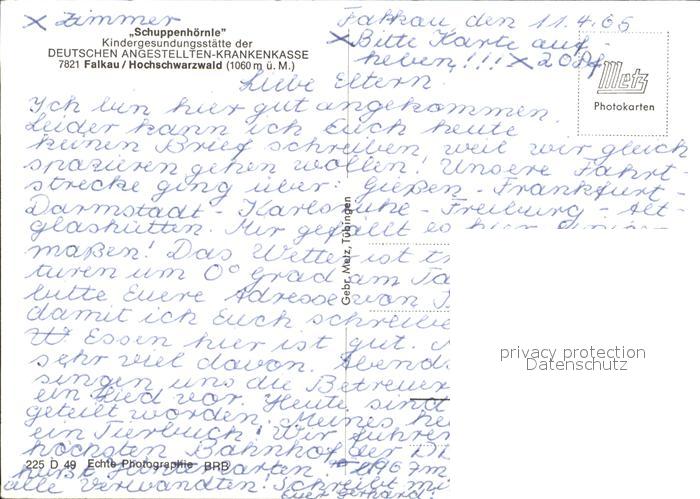 x Zimmer
Falkau den 11.4.65
„Schuppenhörnle"
Kindergesundungsstätte der
DEUTSCHEN ANGESTELLTEN-KRANKENKASSE
7821 Falkau / Hochschwarzwald (1060 m ü. M.)
x Bitte Karte auf
heben!!! x
Metz
Photokarten
Liebe Eltern.
Ich bin hier gut angekommen.
Leider kann ich Euch heute
keinen Brief schreiben, weil wir gleich
spazieren gehen wollen! Unsere Fahrt-
strecke ging über: Gießen - Frankfurt -
Darmstadt - Karlsruhe - Freiburg - Alt-
glashütten. Mir gefällt es hier
maßen! Das Wetter ist
turen um 0° grad am
bitte Euere Adresse von
damit ich Euch schreibe
Essen hier ist gut.
sehr viel davon. Abends
singen uns die Betreuer
ein Lied vor. Heute sind
geteilt worden. Meines
ein Tierbuch! Wir fuhren
höchsten Bahnhof der
225 D 49 Echte Photographie BRB
1967m
alle Verwandten! Schreibt
Euer Gerhard!
Gebr. Metz, Tübingen
privacy protection
Datenschutz